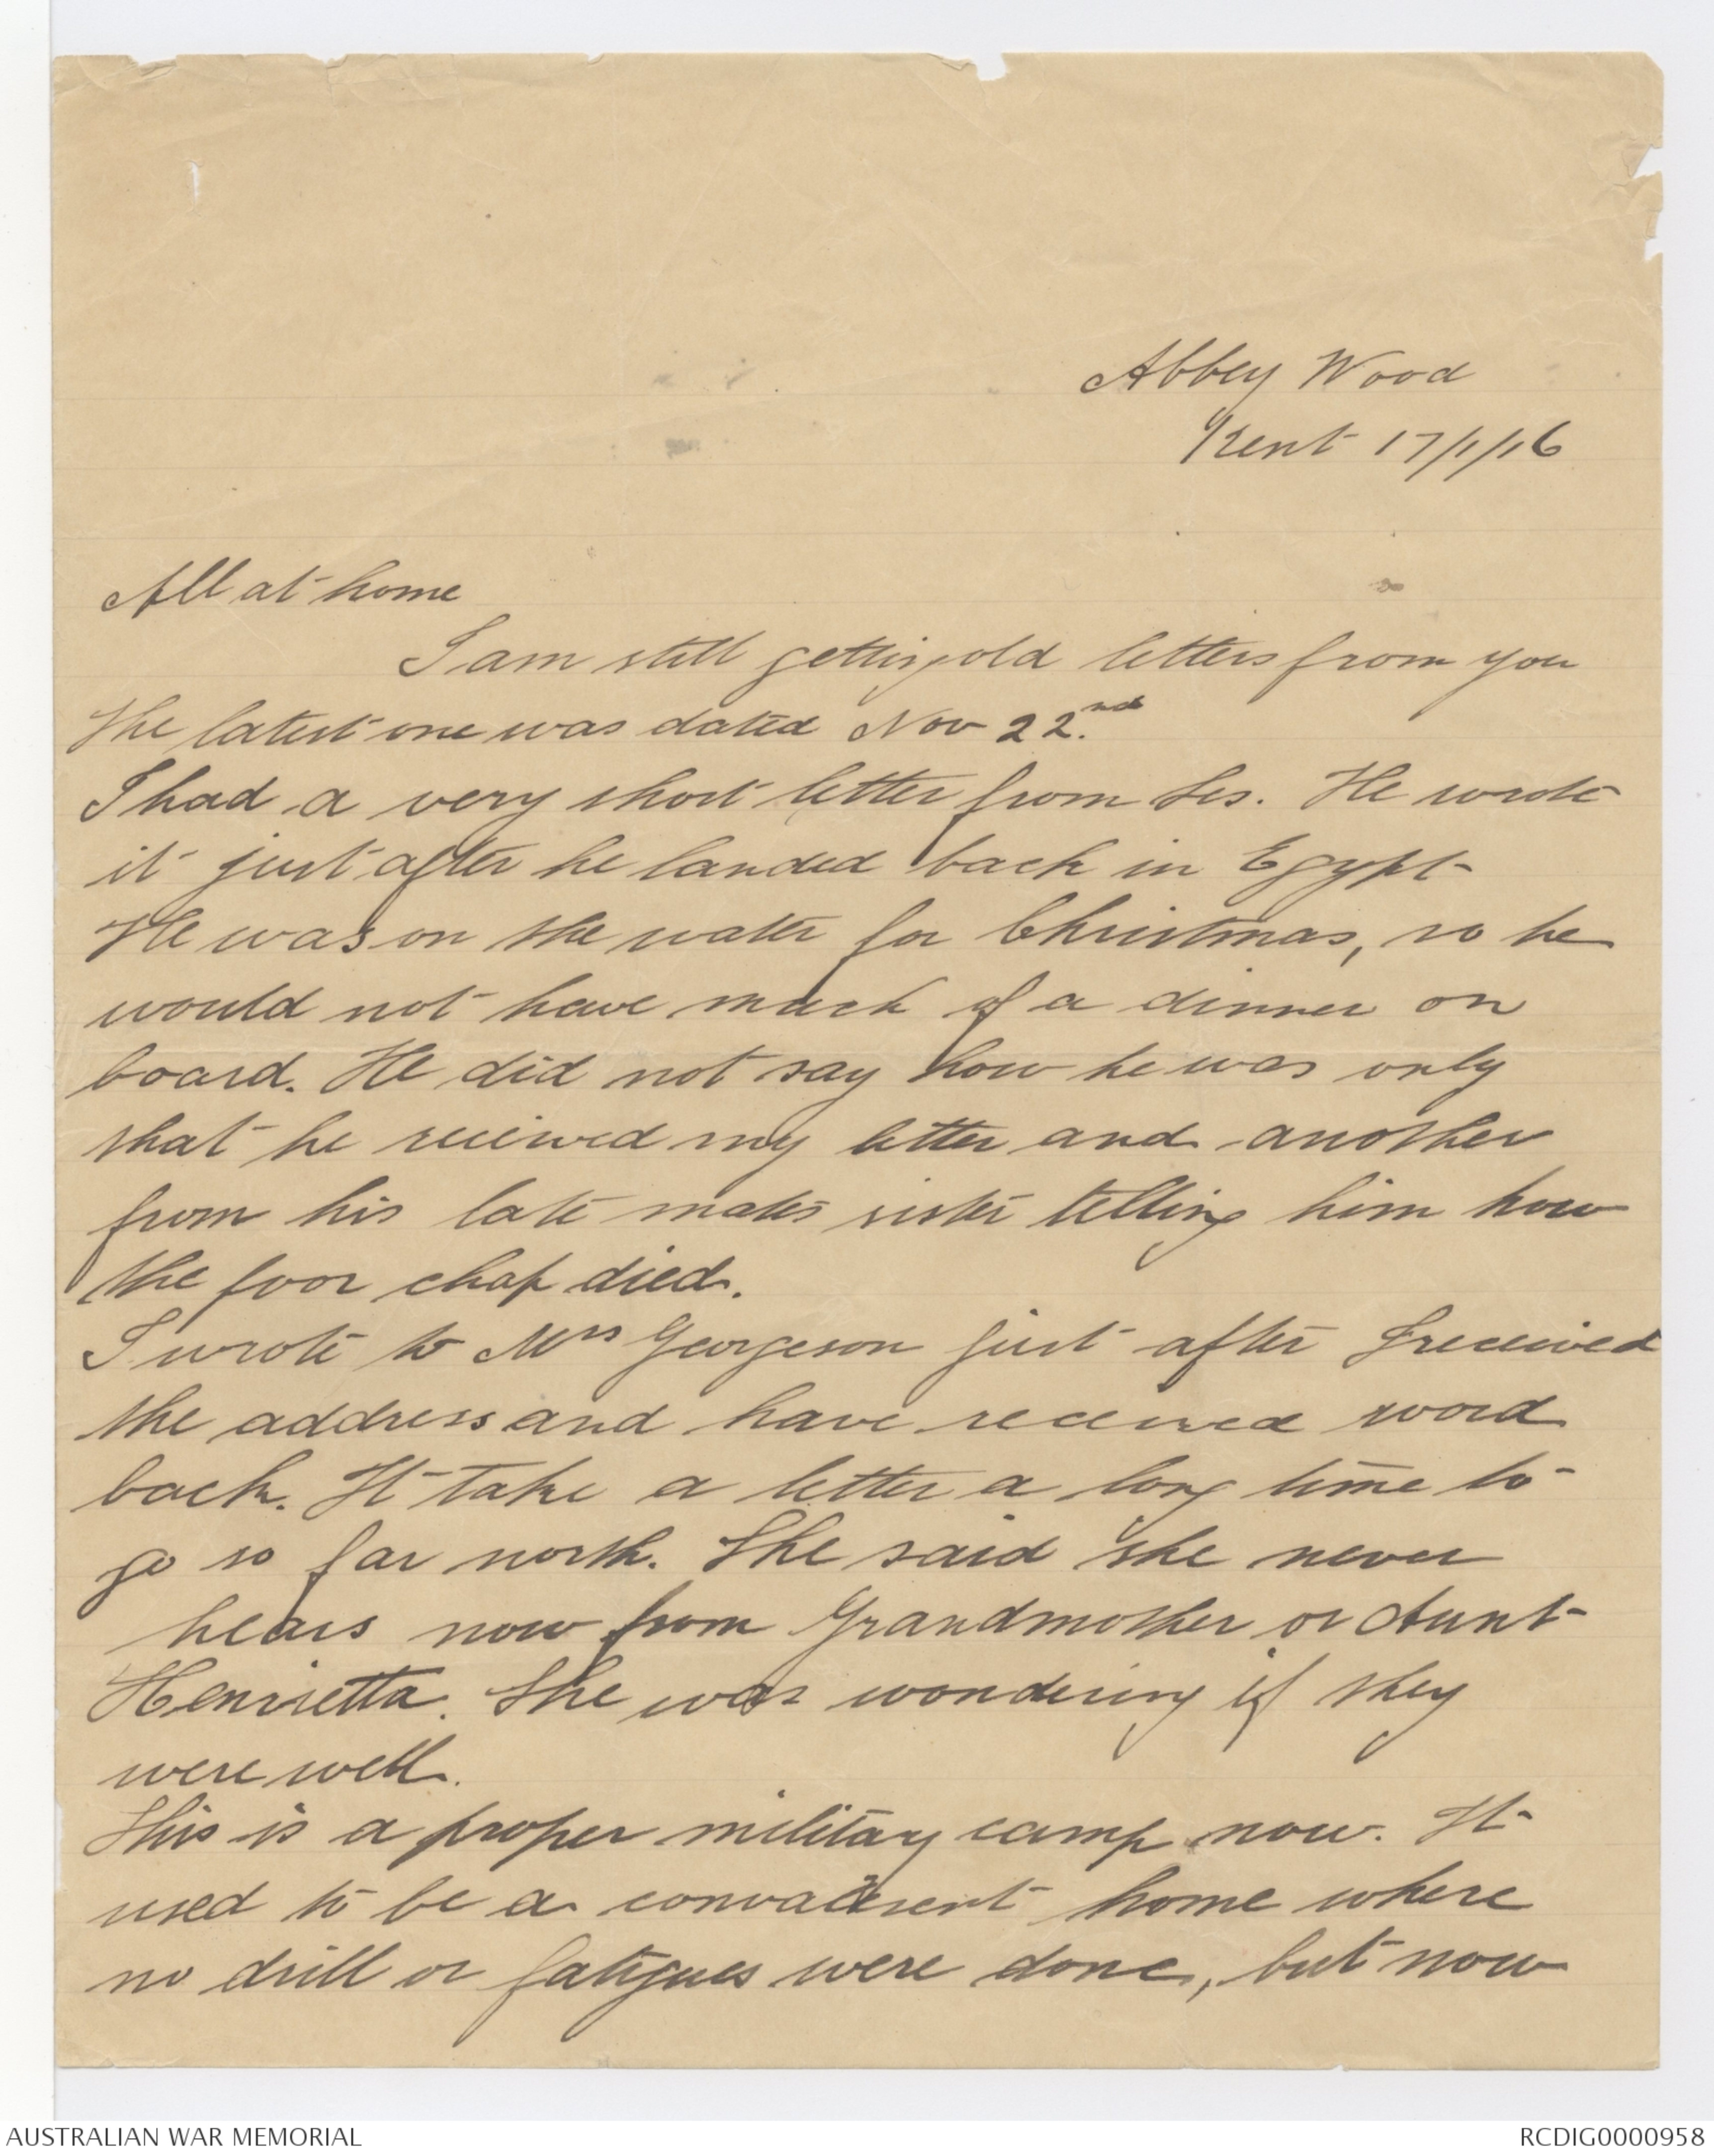 Abbey Wood
Kent 17/1/16
All at home
I am still getting old letters from you
The latest one was dated Nov 22.nd
I had a very short letter from Les. He wrote
it just after he landed back in Egypt
He was on the water for Christmas, so he
would not have much of a dinner on
board. He did not say how he was only
that he recieved my letter and another
from his late mates sister telling him how
the poor chap died.
I wrote to Mrs Georgeson just after I received
the address and have received word
back. It take a letter a long time to
go so far north. She said she never
hears now from Grandmother or Aunt
Henrietta. She was wondering if they
were well.
This is a proper military camp now. It
used to be a convalesent home where
no drill or fatigues were done, but now
AUSTRALIAN WAR MEMORIAL
RCDIG0000958